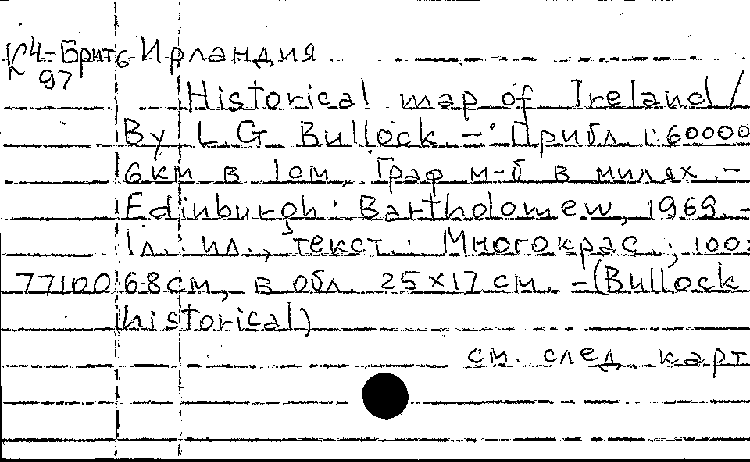 К4-Брит6 Ирландия
97
Historical map of Ireland /
By L.G. Bullock. - Прибл. 1:60000
6км в 1см, Граф м-б в милях. -
Edinburgh: Bartholomew, 1969. -
1л.: ил., текст.: Многокрас.; 100x
77100 68см, в обл. 25x17 см. - (Bullock
historical)
см. след. карт